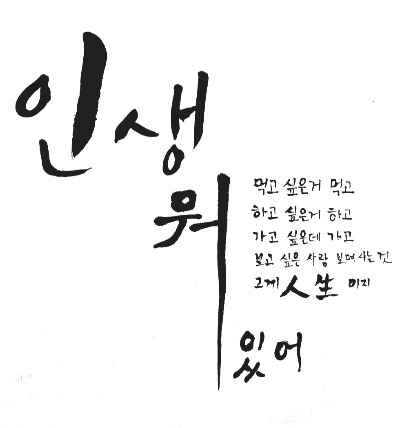 인생
뭐
있어
먹고 싶은거 먹고
하고 싶은거 하고
가고 싶은데 가고
보고 싶은 사람 보며 사는 건
그게 人生 이지